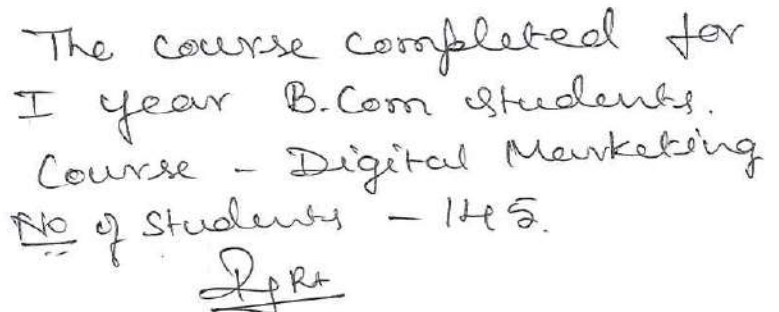 The course completed for
I year B.Com students.
Course - Digital Marketing
No of Students - 145.